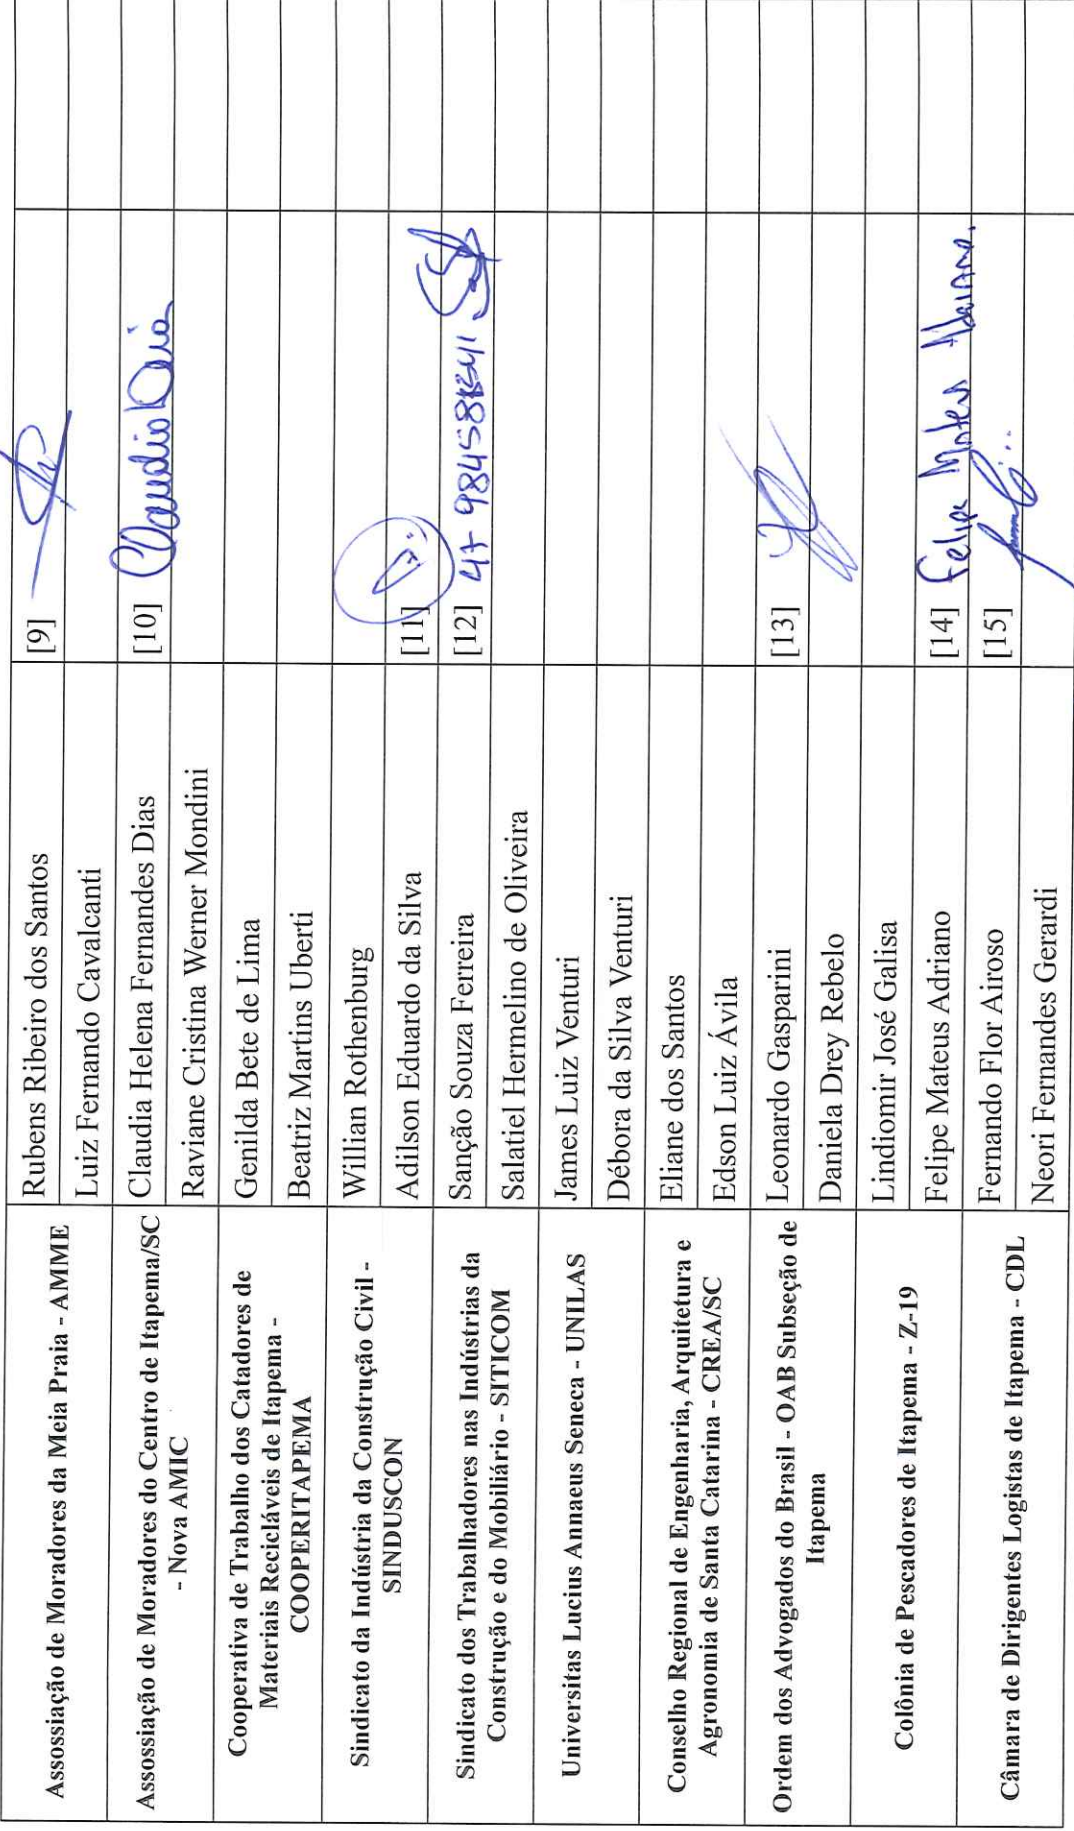 Assossiação de Moradores da Meia Praia - AMME
Rubens Ribeiro dos Santos
[9]
Luiz Fernando Cavalcanti
Assossiação de Moradores do Centro de Itapema/SC
- Nova AMIC
Claudia Helena Fernandes Dias
[10] Claudia Dias
Raviane Cristina Werner Mondini
Cooperativa de Trabalho dos Catadores de
Materiais Recicláveis de Itapema -
COOPERITAPEMA
Genilda Bete de Lima
Beatriz Martins Uberti
Sindicato da Indústria da Construção Civil -
SINDUSCON
Willian Rothenburg
Adilson Eduardo da Silva
[11]
Sindicato dos Trabalhadores nas Indústrias da
Construção e do Mobiliário - SITICOM
Sanção Souza Ferreira
[12]
Salatiel Hermelino de Oliveira
Universitas Lucius Annaeus Seneca - UNILAS
James Luiz Venturi
Débora da Silva Venturi
Conselho Regional de Engenharia, Arquitetura e
Agronomia de Santa Catarina - CREA/SC
Eliane dos Santos
Edson Luiz Ávila
Ordem dos Advogados do Brasil - OAB Subseção de
Itapema
Leonardo Gasparini
[13]
Daniela Drey Rebelo
Colônia de Pescadores de Itapema - Z-19
Lindiomir José Galisa
Felipe Mateus Adriano
[14] Felipe Mateus Adriano.
Câmara de Dirigentes Logistas de Itapema - CDL
Fernando Flor Airoso
[15]
Neori Fernandes Gerardi